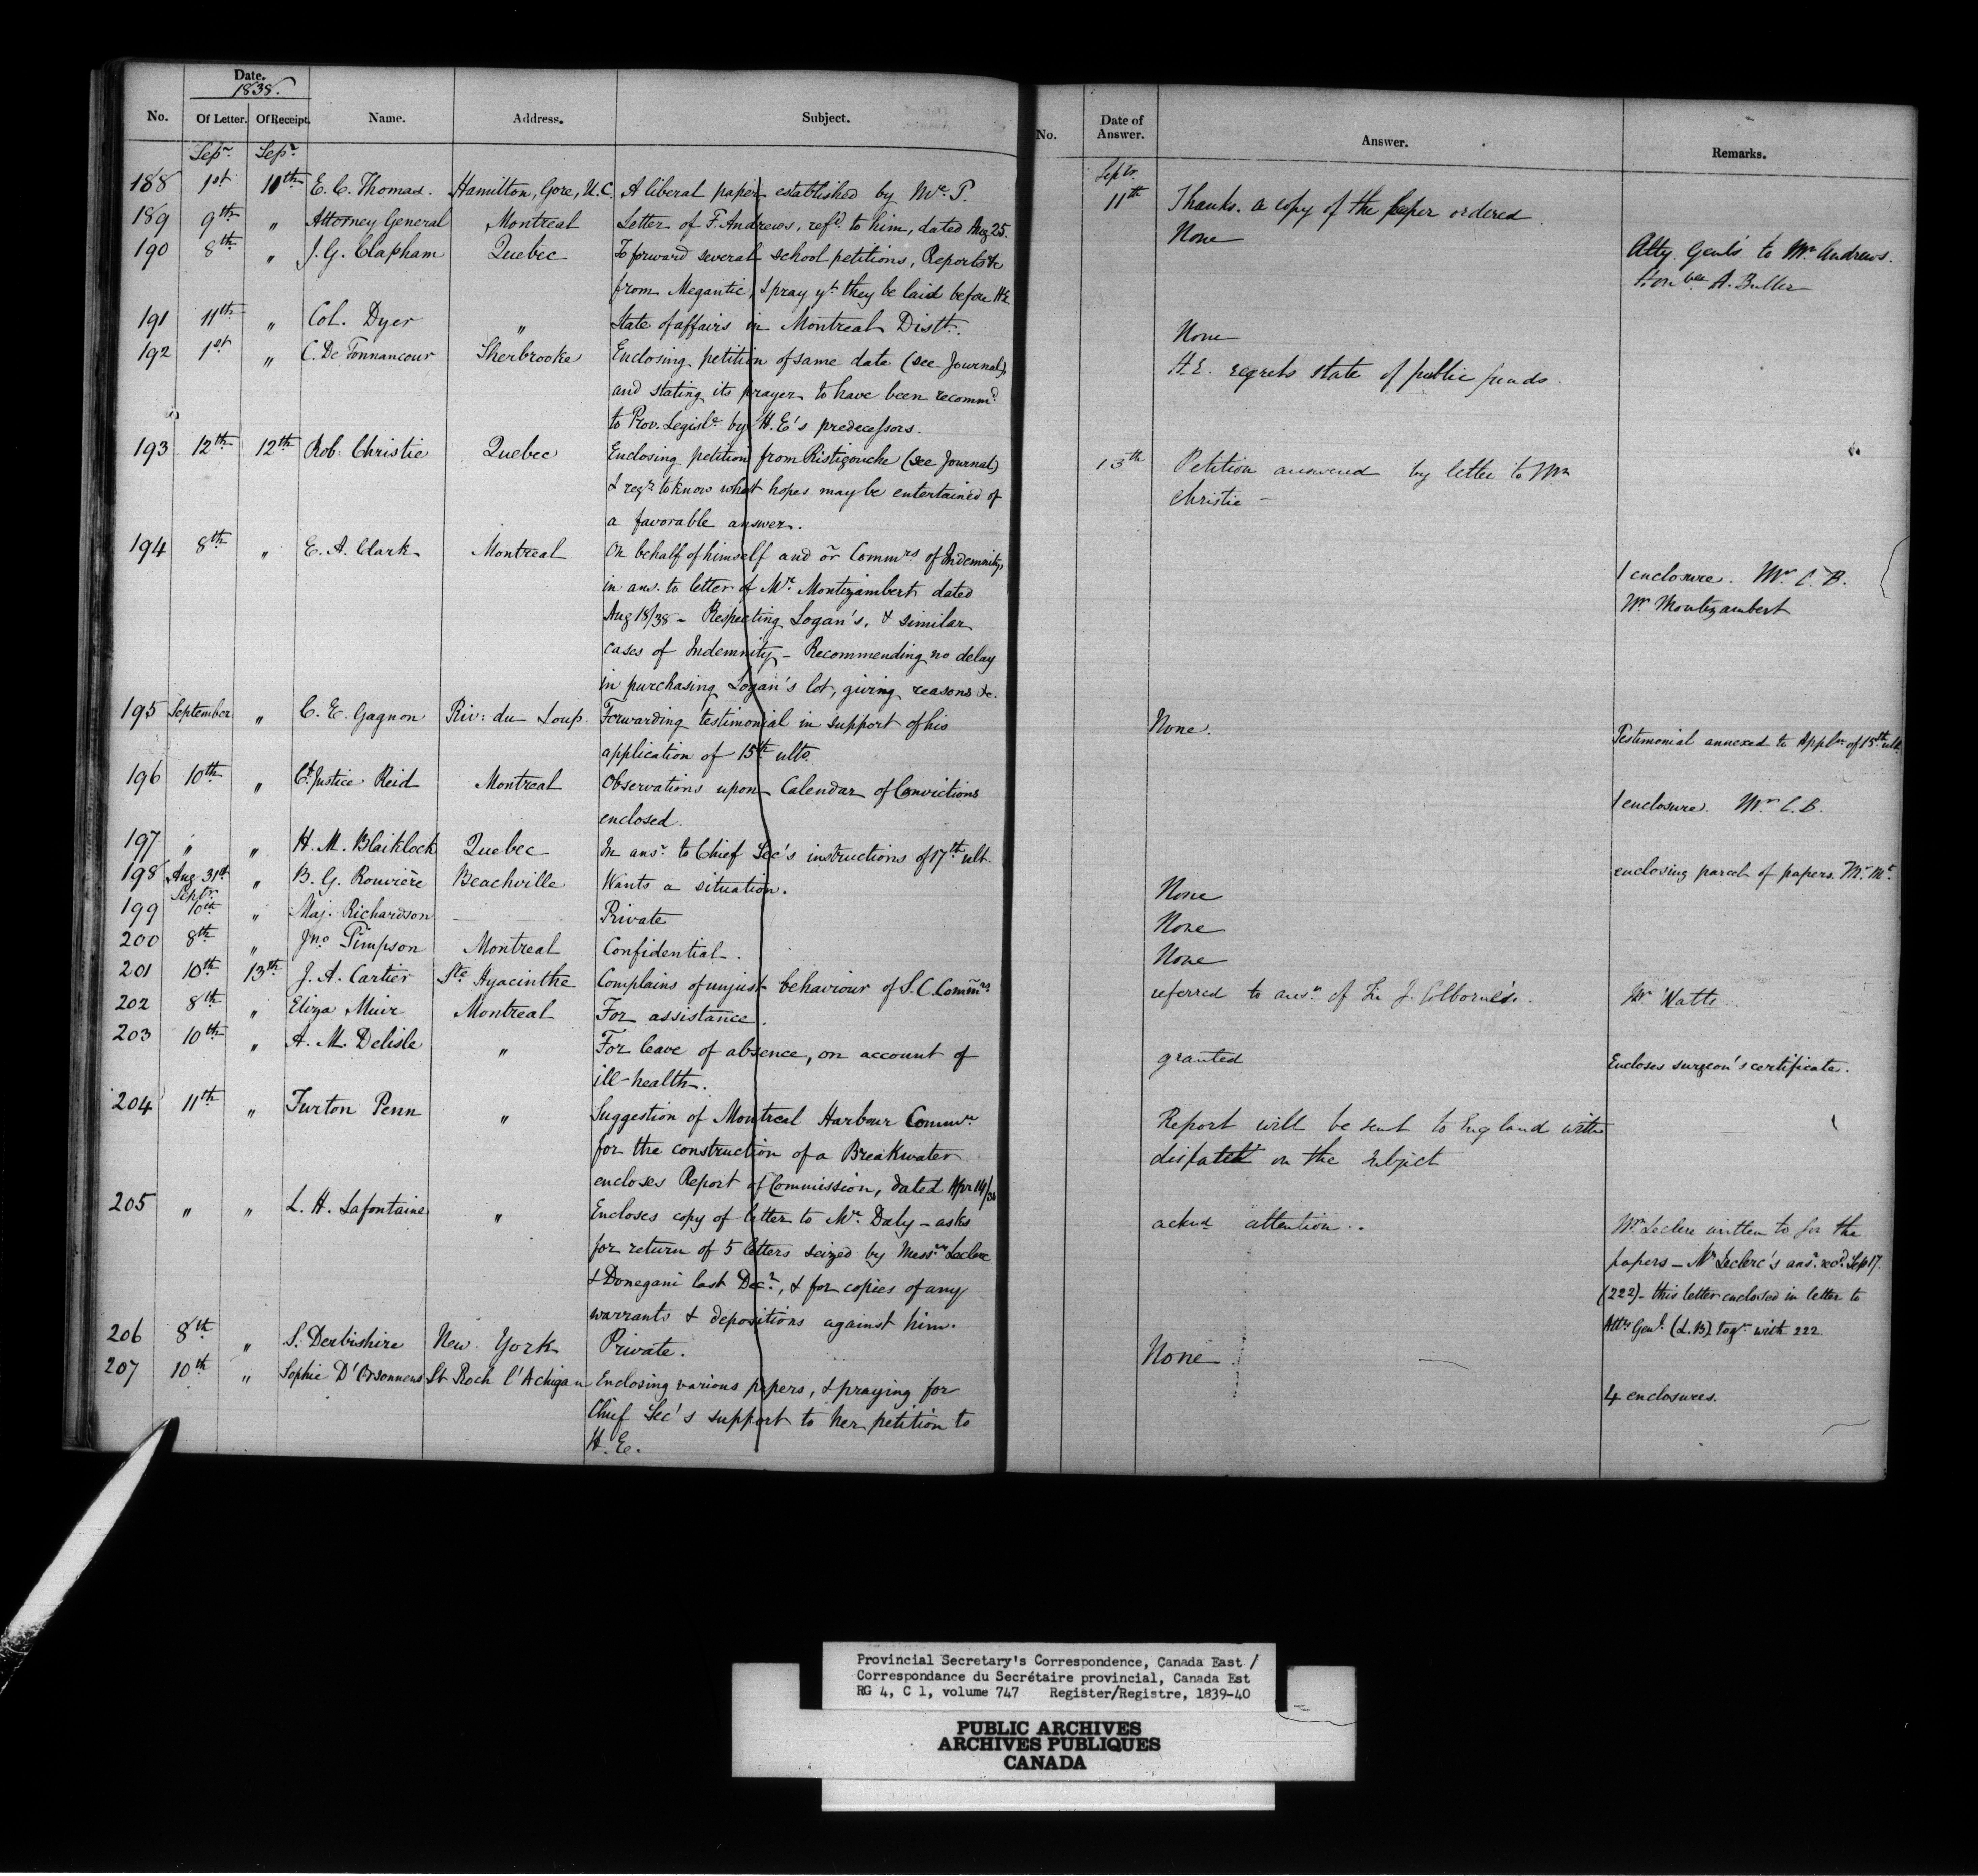 Date.
1838.
No. Of Letter. Of Receipt. Name. Address. Subject.
Sepr. Sepr.
188 1st 11th E. C. Thomas. Hamilton, Gore, U.C. A liberal paper established by Mr. T.
189 9th " Attorney General Montreal Letter of F. Andrews, refd. to him, dated Aug 25.
190 8th " J. G. Clapham Quebec To forward several school petitions, Reports &c
from Megantic, & pray yt. they be laid before H.E.
191 11th " Col. Dyer " State of affairs in Montreal Distt.
192 1st " C. De Tonnancour Sherbrooke Enclosing petition of same date (see Journal),
and stating its prayer to have been recommd.
to Prov. Legisle by H.E's predecessors.
193 12th 12th Rob. Christie Quebec Enclosing petition from Ristigouche (see Journal)
& reqs. to know what hopes may be entertained of
a favorable answer.
194 8th " E. A. Clark Montreal On behalf of himself and or Commrs of Indemnity,
in ans. to letter of Mr. Montizambert dated
Aug 18/38 - Respecting Logan's, & similar
cases of Indemnity - Recommending no delay
in purchasing Logan's lot, giving reasons &c.
195 September " C. E. Gagnon Riv: du Loup. Forwarding testimonial in support of his
application of 15th ulto.
196 10th " Ch. Justice Reid Montreal Observations upon Calendar of Convictions
enclosed.
197 " " H. M. Blaiklock Quebec In ansr. to Chief Sec's instructions of 17th ult.
198 Aug 31st " B. G. Rouvière Beachville Wants a situation.
Septr.
199 10th " Maj. Richardson Private
200 8th " Jno. Simpson Montreal Confidential.
201 10th 13th J. A. Cartier Ste Hyacinthe Complains of unjust behaviour of S.C. Commrs
202 8th " Eliza Muir Montreal For assistance.
203 10th " A. M. Delisle " For leave of absence, on account of
ill-health.
204 11th " Turton Penn " Suggestion of Montreal Harbour Commrs
for the construction of a Breakwater
encloses Report of Commission, dated Apr 14/38
205 " " L. H. Lafontaine " Encloses copy of letter to Mr. Daly - asks
for return of 5 letters seized by Messrs Leclerc
& Donegani last Decr., & for copies of any
warrants & depositions against him.
206 8th " S. Derbishire New York Private.
207 10th " Sophie D'Orsonnens St Roch l'Achigan Enclosing various papers, & praying for
Chief Sec's support to her petition to
H. E.
No. Date of Answer. Answer. Remarks.
Septr.
11th Thanks. a copy of the paper ordered.
None Atty. Genl's to Mr Andrews.
Honble A. Buller
None
H.E. regrets state of public funds.
13th Petition answered by letter to Mr
Christie -
1 enclosure. Mr C. B.
Mr Montizambert
None. Testimonial annexed to Applon of 15th ult.
1 enclosure. Mr C. B.
enclosing parcel of papers. Mr. Mt.
None
None
None
referred to ansr of Sir J. Colborne's. Mr Watts
granted Encloses surgeon's certificate.
Report will be sent to England with
dispatch on the subject
ackd attention.. Mr Leclerc written to for the
papers - Mr Leclerc's ansr. recd. Sep 17.
(222) - this letter enclosed in letter to
Atty Genl. (L.B.) togr. with 222.
None
4 enclosures.
Provincial Secretary's Correspondence, Canada East /
Correspondance du Secrétaire provincial, Canada Est
RG 4, C 1, volume 747 Register/Registre, 1839-40
PUBLIC ARCHIVES
ARCHIVES PUBLIQUES
CANADA